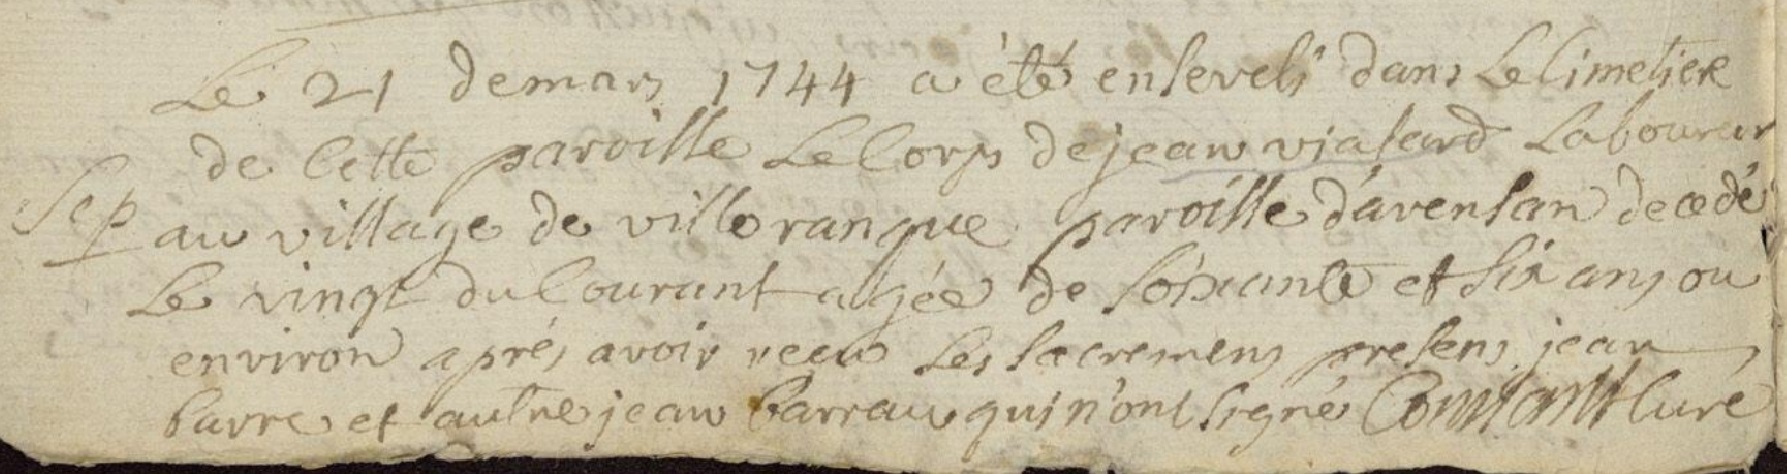 Le 21 de mars 1744 a été enseveli dans Le Cimetiere
de Cette paroisse Le Corps de jean viasard Laboureur
Sep
au village de villeranque paroisse d'avensan decedé
Le vingt du Courant agée de soixante et six ans ou
environ aprés avoir recu Les sacremens presens jean
barre et autre jean barreau qui n'ont signé Curé